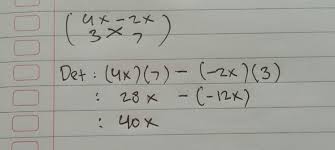 (4x -2x
3x 7)
Det : (4x)(7) - (-2x)(3)
: 28x - (-12x)
: 40x